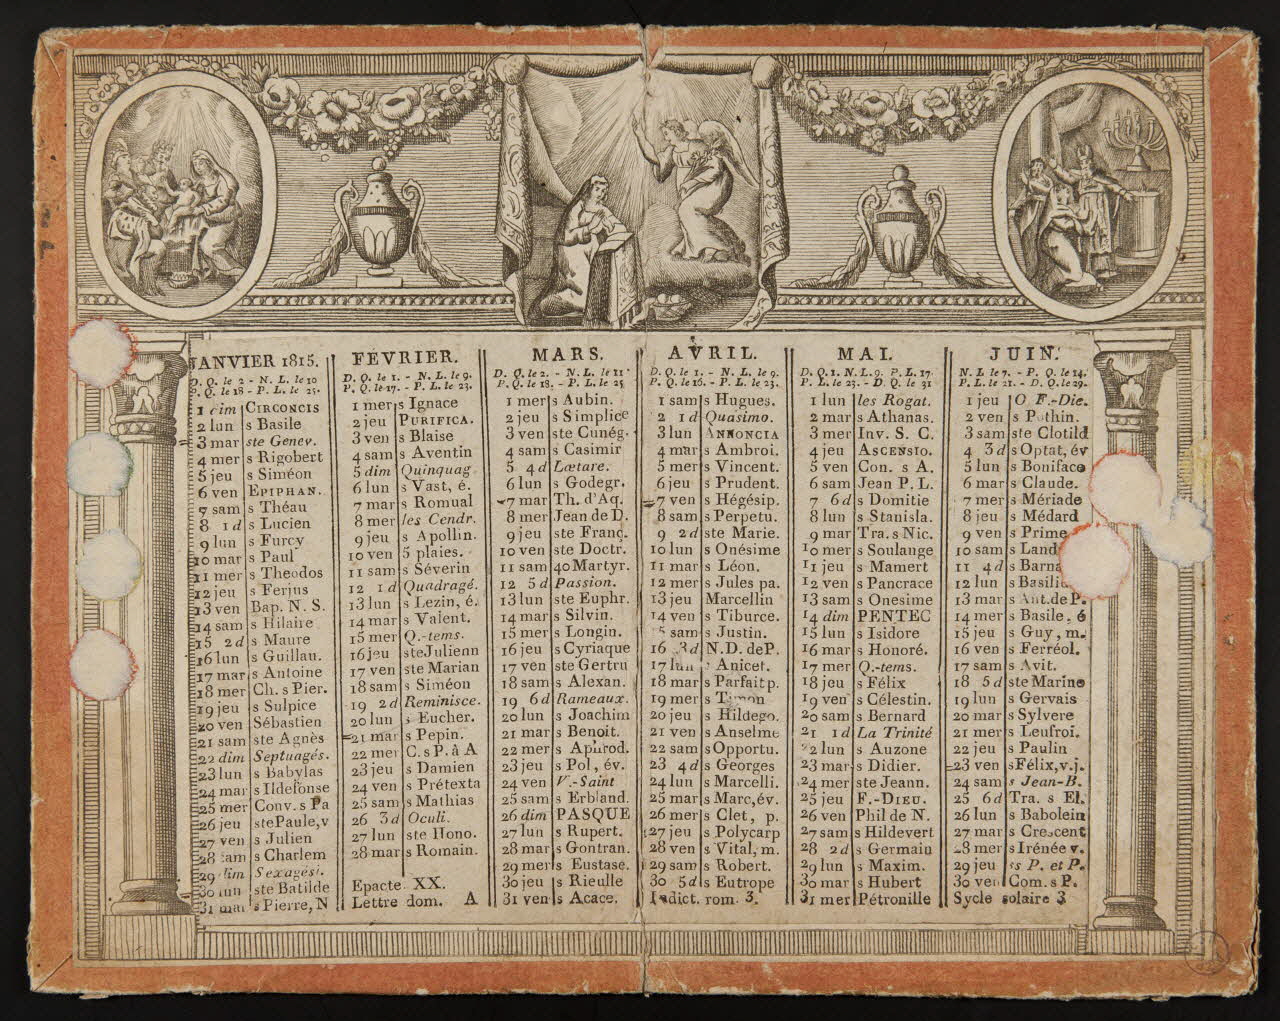 JANVIER 1815.
D. Q. le 2 - N. L. le 10
P. Q. le 18 - P. L. le 25.
1 dim CIRCONCIS
2 lun s Basile
3 mar ste Genev.
4 mer s Rigobert
5 jeu s Siméon
6 ven EPIPHAN.
7 sam s Théau
8 1 d s Lucien
9 lun s Furcy
10 mar s Paul
11 mer s Theodos
12 jeu s Ferjus
13 ven Bap. N. S.
14 sam s Hilaire
15 2 d s Maure
16 lun s Guillau.
17 mar s Antoine
18 mer Ch. s Pier.
19 jeu s Sulpice
20 ven Sébastien
21 sam ste Agnès
22 dim Septuagés.
23 lun s Babylas
24 mar s Ildefonse
25 mer Conv. s Pa
26 jeu ste Paule, v
27 ven s Julien
28 sam s Charlem
29 dim Sexagési.
30 lun ste Batilde
31 mar s Pierre, N
FÉVRIER.
D. Q. le 1. - N. L. le 9.
P. Q. le 17. - P. L. le 23.
1 mer s Ignace
2 jeu PURIFICA.
3 ven s Blaise
4 sam s Aventin
5 dim Quinquag
6 lun s Vast, é.
7 mar s Romual
8 mer les Cendr.
9 jeu s Apollin.
10 ven 5 plaies.
11 sam s Séverin
12 1 d Quadragé.
13 lun s Lezin, é.
14 mar s Valent.
15 mer Q.-tems.
16 jeu ste Julienn
17 ven ste Marian
18 sam s Siméon
19 2 d Reminisce.
20 lun s Eucher.
21 mar s Pepin.
22 mer C. s P. à A
23 jeu s Damien
24 ven s Prétexta
25 sam s Mathias
26 3 d Oculi.
27 lun ste Hono.
28 mar s Romain.
Epacte XX.
Lettre dom. A
MARS.
D. Q. le 2. - N. L. le 11
P. Q. le 18. - P. L. le 25
1 mer s Aubin.
2 jeu s Simplice
3 ven ste Cunég.
4 sam s Casimir
5 4 d Lœtare.
6 lun s Godegr.
7 mar Th. d'Aq.
8 mer Jean de D.
9 jeu ste Franç.
10 ven ste Doctr.
11 sam 40 Martyr.
12 5 d Passion.
13 lun ste Euphr.
14 mar s Silvin.
15 mer s Longin.
16 jeu s Cyriaque
17 ven ste Gertru
18 sam s Alexan.
19 6 d Rameaux.
20 lun s Joachim
21 mar s Benoit.
22 mer s Aphrod.
23 jeu s Pol, év.
24 ven V.-Saint
25 sam s Erbland.
26 dim PASQUE
27 lun s Rupert.
28 mar s Gontran.
29 mer s Eustase.
30 jeu s Rieulle
31 ven s Acace.
AVRIL.
D. Q. le 1. - N. L. le 9.
P. Q. le 16. - P. L. le 23.
1 sam s Hugues.
2 1 d Quasimo.
3 lun ANNONCIA
4 mar s Ambroi.
5 mer s Vincent.
6 jeu s Prudent.
7 ven s Hégésip.
8 sam s Perpetu.
9 2 d ste Marie.
10 lun s Onésime
11 mar s Léon.
12 mer s Jules pa.
13 jeu Marcellin
14 ven s Tiburce.
15 sam s Justin.
16 3 d N. D. de P.
17 lun s Anicet.
18 mar s Parfait p.
19 mer s
20 jeu s Hildego.
21 ven s Anselme
22 sam s Opportu.
23 4 d s Georges
24 lun s Marcelli.
25 mar s Marc, év.
26 mer s Clet, p.
27 jeu s Polycarp
28 ven s Vital, m.
29 sam s Robert.
30 5 d s Eutrope
Indict. rom. 3.
MAI.
D. Q. 1. N. L. 9. P. L. 17.
P. L. 23. - D. Q. le 31
1 lun les Rogat.
2 mar s Athanas.
3 mer Inv. S. C.
4 jeu ASCENSIO.
5 ven Con. s A.
6 sam Jean P. L.
7 6 d s Domitie
8 lun s Stanisla.
9 mar Tra. s Nic.
10 mer s Soulange
11 jeu s Mamert
12 ven s Pancrace
13 sam s Onesime
14 dim PENTEC
15 lun s Isidore
16 mar s Honoré.
17 mer Q.-tems.
18 jeu s Félix
19 ven s Célestin.
20 sam s Bernard
21 1 d La Trinité
22 lun s Auzone
23 mar s Didier.
24 mer ste Jeann.
25 jeu F.-DIEU.
26 ven Phil de N.
27 sam s Hildevert
28 2 d s Germain
29 lun s Maxim.
30 mar s Hubert
31 mer Pétronille
JUIN.
N. L. le 7. - P. Q. le 14.
P. L. le 21. - D. Q. le 29.
1 jeu O F.-Die.
2 ven s Pothin.
3 sam ste Clotild
4 3 d s Optat, év
5 lun s Boniface
6 mar s Claude.
7 mer s Mériade
8 jeu s Médard
9 ven s Prime
10 sam s Land
11 4 d s Barna
12 lun s Basili
13 mar s Ant. de P.
14 mer s Basile, é
15 jeu s Guy, m.
16 ven s Ferréol.
17 sam s Avit.
18 5 d ste Marine
19 lun s Gervais
20 mar s Sylvere
21 mer s Leufroi.
22 jeu s Paulin
23 ven s Félix, v. j.
24 sam s Jean-B.
25 6 d Tra. s El.
26 lun s Babolein
27 mar s Crescent
28 mer s Irénée v.
29 jeu ss P. et P.
30 ven Com. s P.
Sycle solaire 3